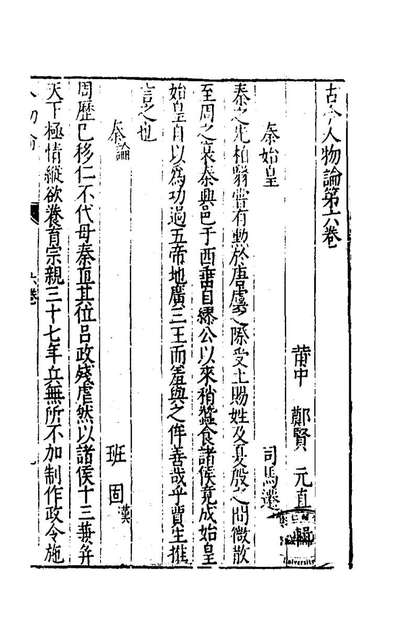 古今人物論第六卷
莆中 鄭賢 元直 輯
秦始皇 司馬遷
秦之先柏翳嘗有勳於唐虞之際受土賜姓及夏殷之間微散
至周之衰秦興邑于西垂自繆公以來稍蠶食諸侯竟成始皇
始皇自以為功過五帝地廣三王而羞與之侔善哉乎賈生推
言之也
秦論 班固 漢
周歷已移仁不代母秦直其位呂政殘虐然以諸侯十三并兼
天下極情縱欲養育宗親三十七年兵無所不加制作政令施